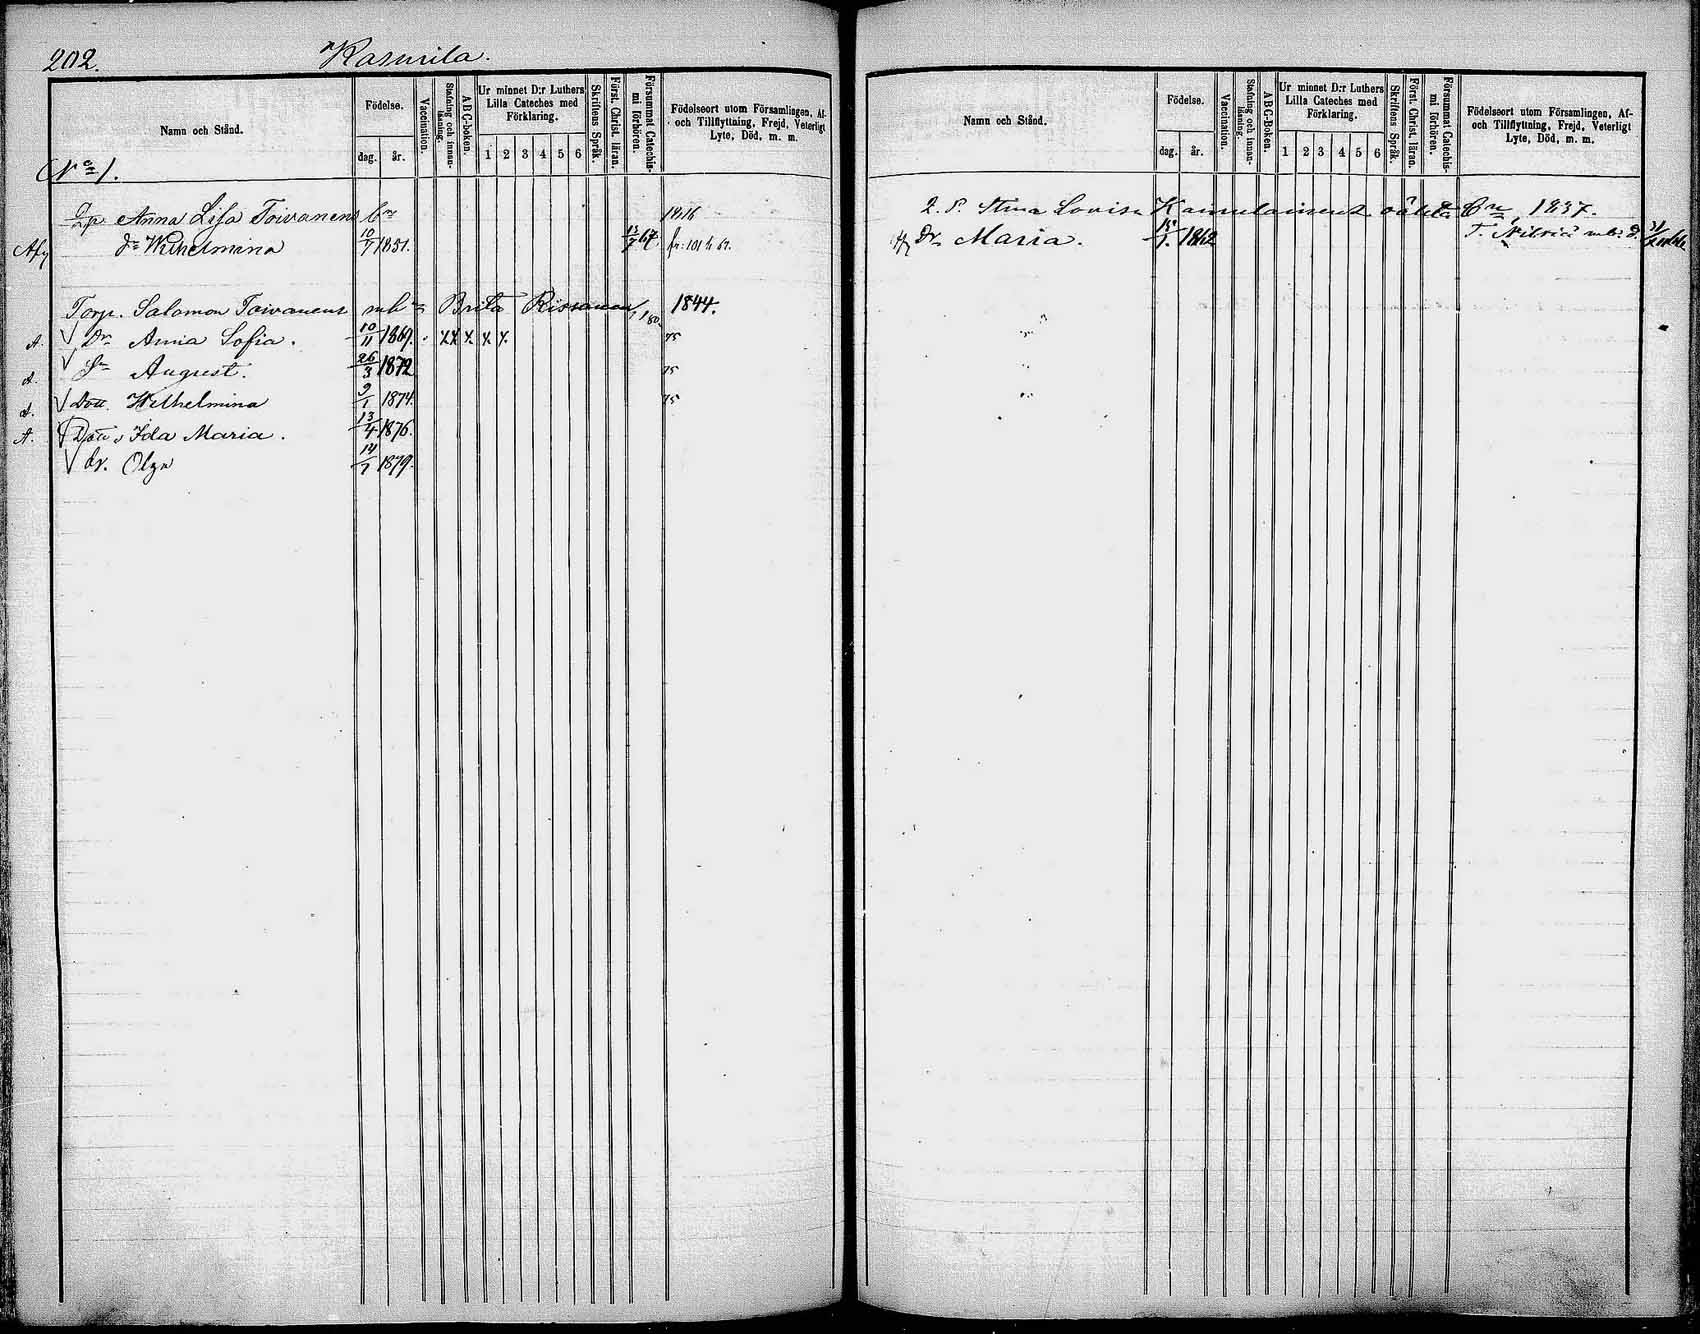 202. Kasurila.
Namn och Stånd.
Födelse.
dag. år.
Vaccination.
Stafning och innan-läsning.
ABC-boken.
Ur minnet D:r Luthers Lilla Cateches med Förklaring.
1 2 3 4 5 6
Skriftens Språk.
Först. Christ. läran.
Försummat Catechismi förhören.
Födelseort utom Församlingen, Af- och Tillflyttning, Frejd, Veterligt Lyte, Död, m. m.
No 1.
Anna Lisa Toivanens 1816
Dr Wilhelmina 10/7 1851. 67 fr: 101 67.
Torp. Salomon Toivanens Brita Rissanen 1844.
A. Dr Anna Sofia. 10/11 1869. x x x x x 75
A. Sn August. 26/3 1872 75
A. Dott. Wilhelmina 9/1 1874. 75
A. Dott. Ida Maria. 13/4 1876.
dr. Olga 14/7 1879.
Namn och Stånd.
Födelse.
dag. år.
Vaccination.
Stafning och innan-läsning.
ABC-boken.
Ur minnet D:r Luthers Lilla Cateches med Förklaring.
1 2 3 4 5 6
Skriftens Språk.
Först. Christ. läran.
Försummat Catechismi förhören.
Födelseort utom Församlingen, Af- och Tillflyttning, Frejd, Veterligt Lyte, Död, m. m.
Stina Lovisa oäkta 1837.
Dr Maria. 1862 Nilsiä